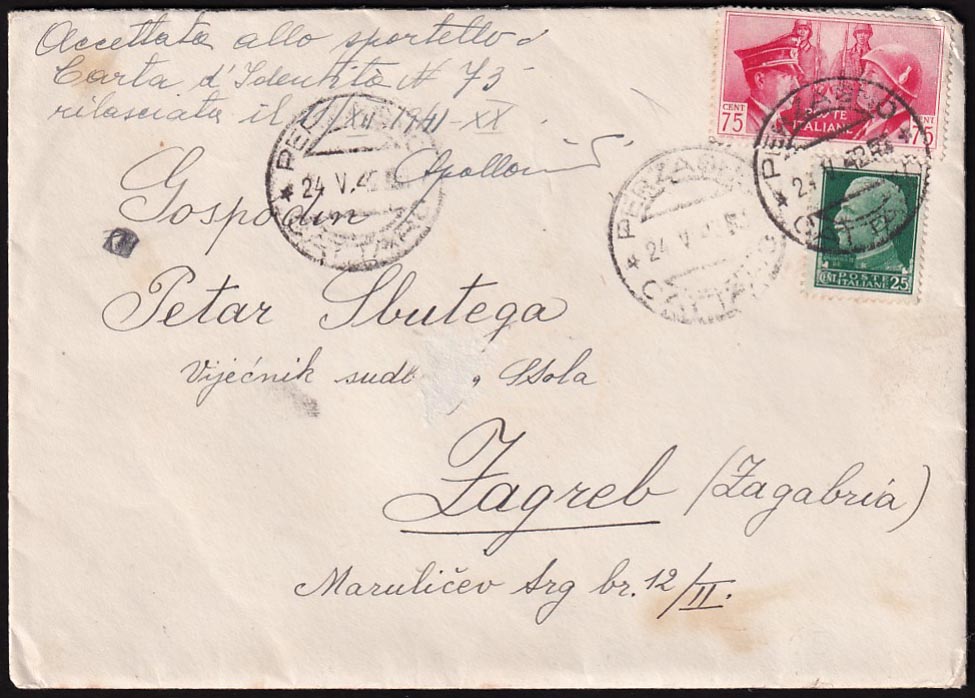 Accettata allo sportello
Carta d'Identità N 73
rilasciata il 11 XII 1941-XX
CENT 75
75
POSTE
ITALIANE
PERZAGNO
24 V. 42
CATTARO
PERZAGNO
24 V. 42
CATTARO
PERZAGNO
24 V. 42
CATTARO
CENT POSTE ITALIANE 25
Gospodin
Petar Sbutega
Vijećnik sudb Stola
Zagreb (Zagabria)
Marulićev trg br. 12/II.